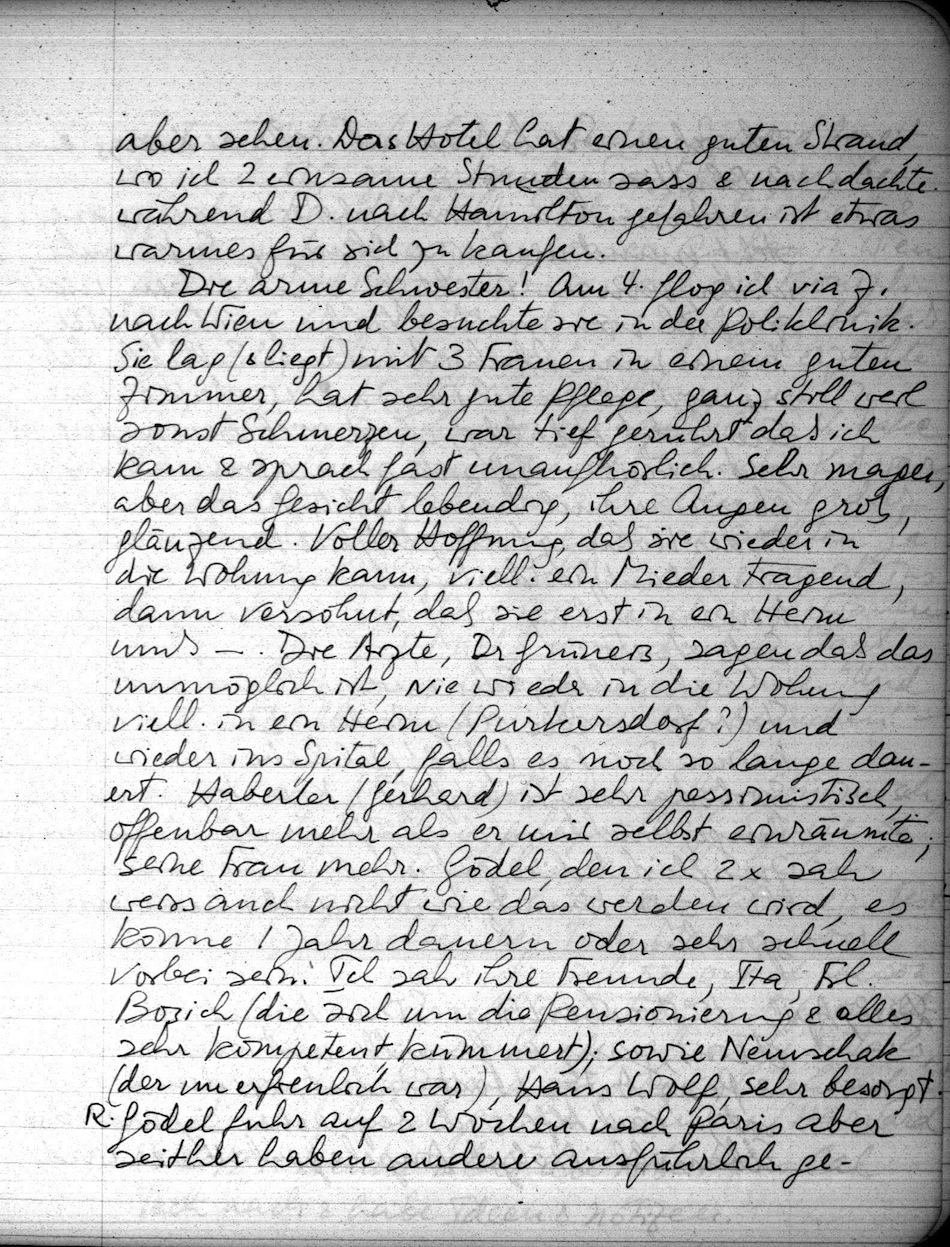 aber sehen. Das Hotel hat einen guten Strand,
wo ich 2 einsame Stunden sass & nachdachte.
während D. nach Hamilton gefahren ist etwas
warmes für sich zu kaufen.
Die arme Schwester! Am 4. flog ich via Z.
nach Wien und besuchte sie in der Poliklinik.
Sie lag (& liegt) mit 3 Frauen in einem guten
Zimmer, hat sehr gute Pflege, ganz still weil
sonst Schmerzen, war tief gerührt daß ich
kam & sprach fast unaufhörlich. Sehr mager,
aber das Gesicht lebendig, ihre Augen groß,
glänzend. Voller Hoffnung, daß sie wieder in
die Wohnung kann, viell. ein Mieder tragend,
dann versöhnt, daß sie erst in ein Heim
muß —. Die Ärzte, Dr Grüneis, sagen daß das
unmöglich ist, nie wieder in die Wohnung
viell. in ein Heim (Purkersdorf?) und
wieder ins Spital, falls es noch so lange dau-
ert. Haberler (Gerhard) ist sehr pessimistisch,
offenbar mehr als er mir selbst einräumte;
seine Frau mehr. Gödel, den ich 2x sah
weiss auch nicht wie das werden wird, es
könne 1 Jahr dauern oder sehr schnell
vorbei sein. Ich sah ihre Freunde, Ita, Frl.
Bozich (die sich um die Pensionierung & alles
sehr kompetent kümmert); sowie Neuschak
(der unerfreulich war), Hans Wolf, sehr besorgt.
R. Gödel fuhr auf 2 Wochen nach Paris aber
seither haben andere ausführlich ge-
Ideen & Notizen.